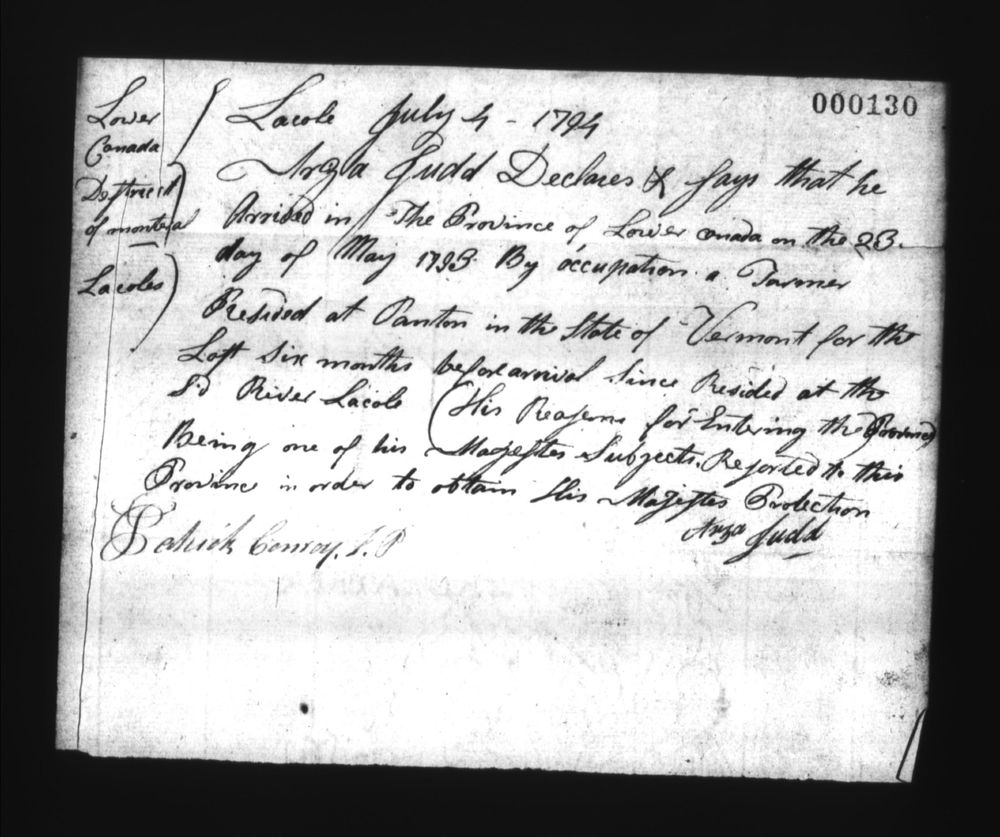 000130
Lower
Canada
Destrect
of montera
Lacoles
Lacole July 4 - 1794
Arza Judd Declares & says that he
Arrived in The Province of Lower Canada on the 23.
day of May 1793 By occupation a Farmer
Resided at Panton in the State of Vermont for the
Last Six months before arrival Since Resided at the
Sd River Lacole (His Reasons for Entering the Province)
Being one of his Majestes Subjects. Resorted to this
Province in order to obtain His Majestes Protection
Arza Judd
Patrick Conroy. J. P